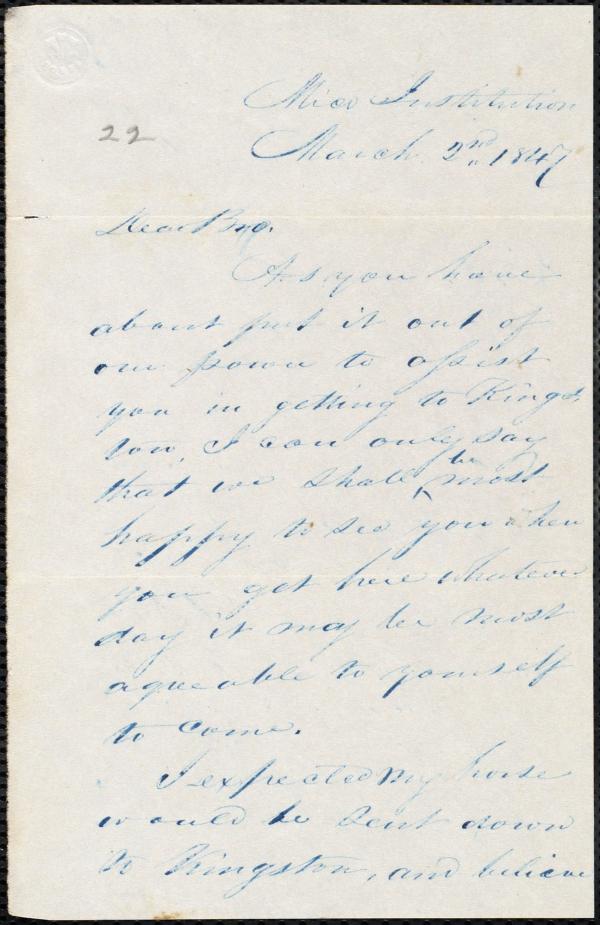 22
Mico Institution
March 2nd 1847
Dear Bro.
As you have
about put it out of
our power to assist
you in getting to Kings
ton, I can only say
that we shall be most
happy to see you when
you get here whatever
day it may be most
agreeable to yourself
to come.
I expected my horse
would be sent down
to Kingston, and believe